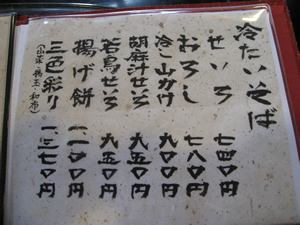 冷たいそば
せいろ 七四〇円
おろし 七八〇円
冷し山かけ 九〇〇円
胡麻汁せいろ 九五〇円
若鳥せいろ 九五〇円
揚げ餅 一一〇〇円
三色彩り 一三七〇円